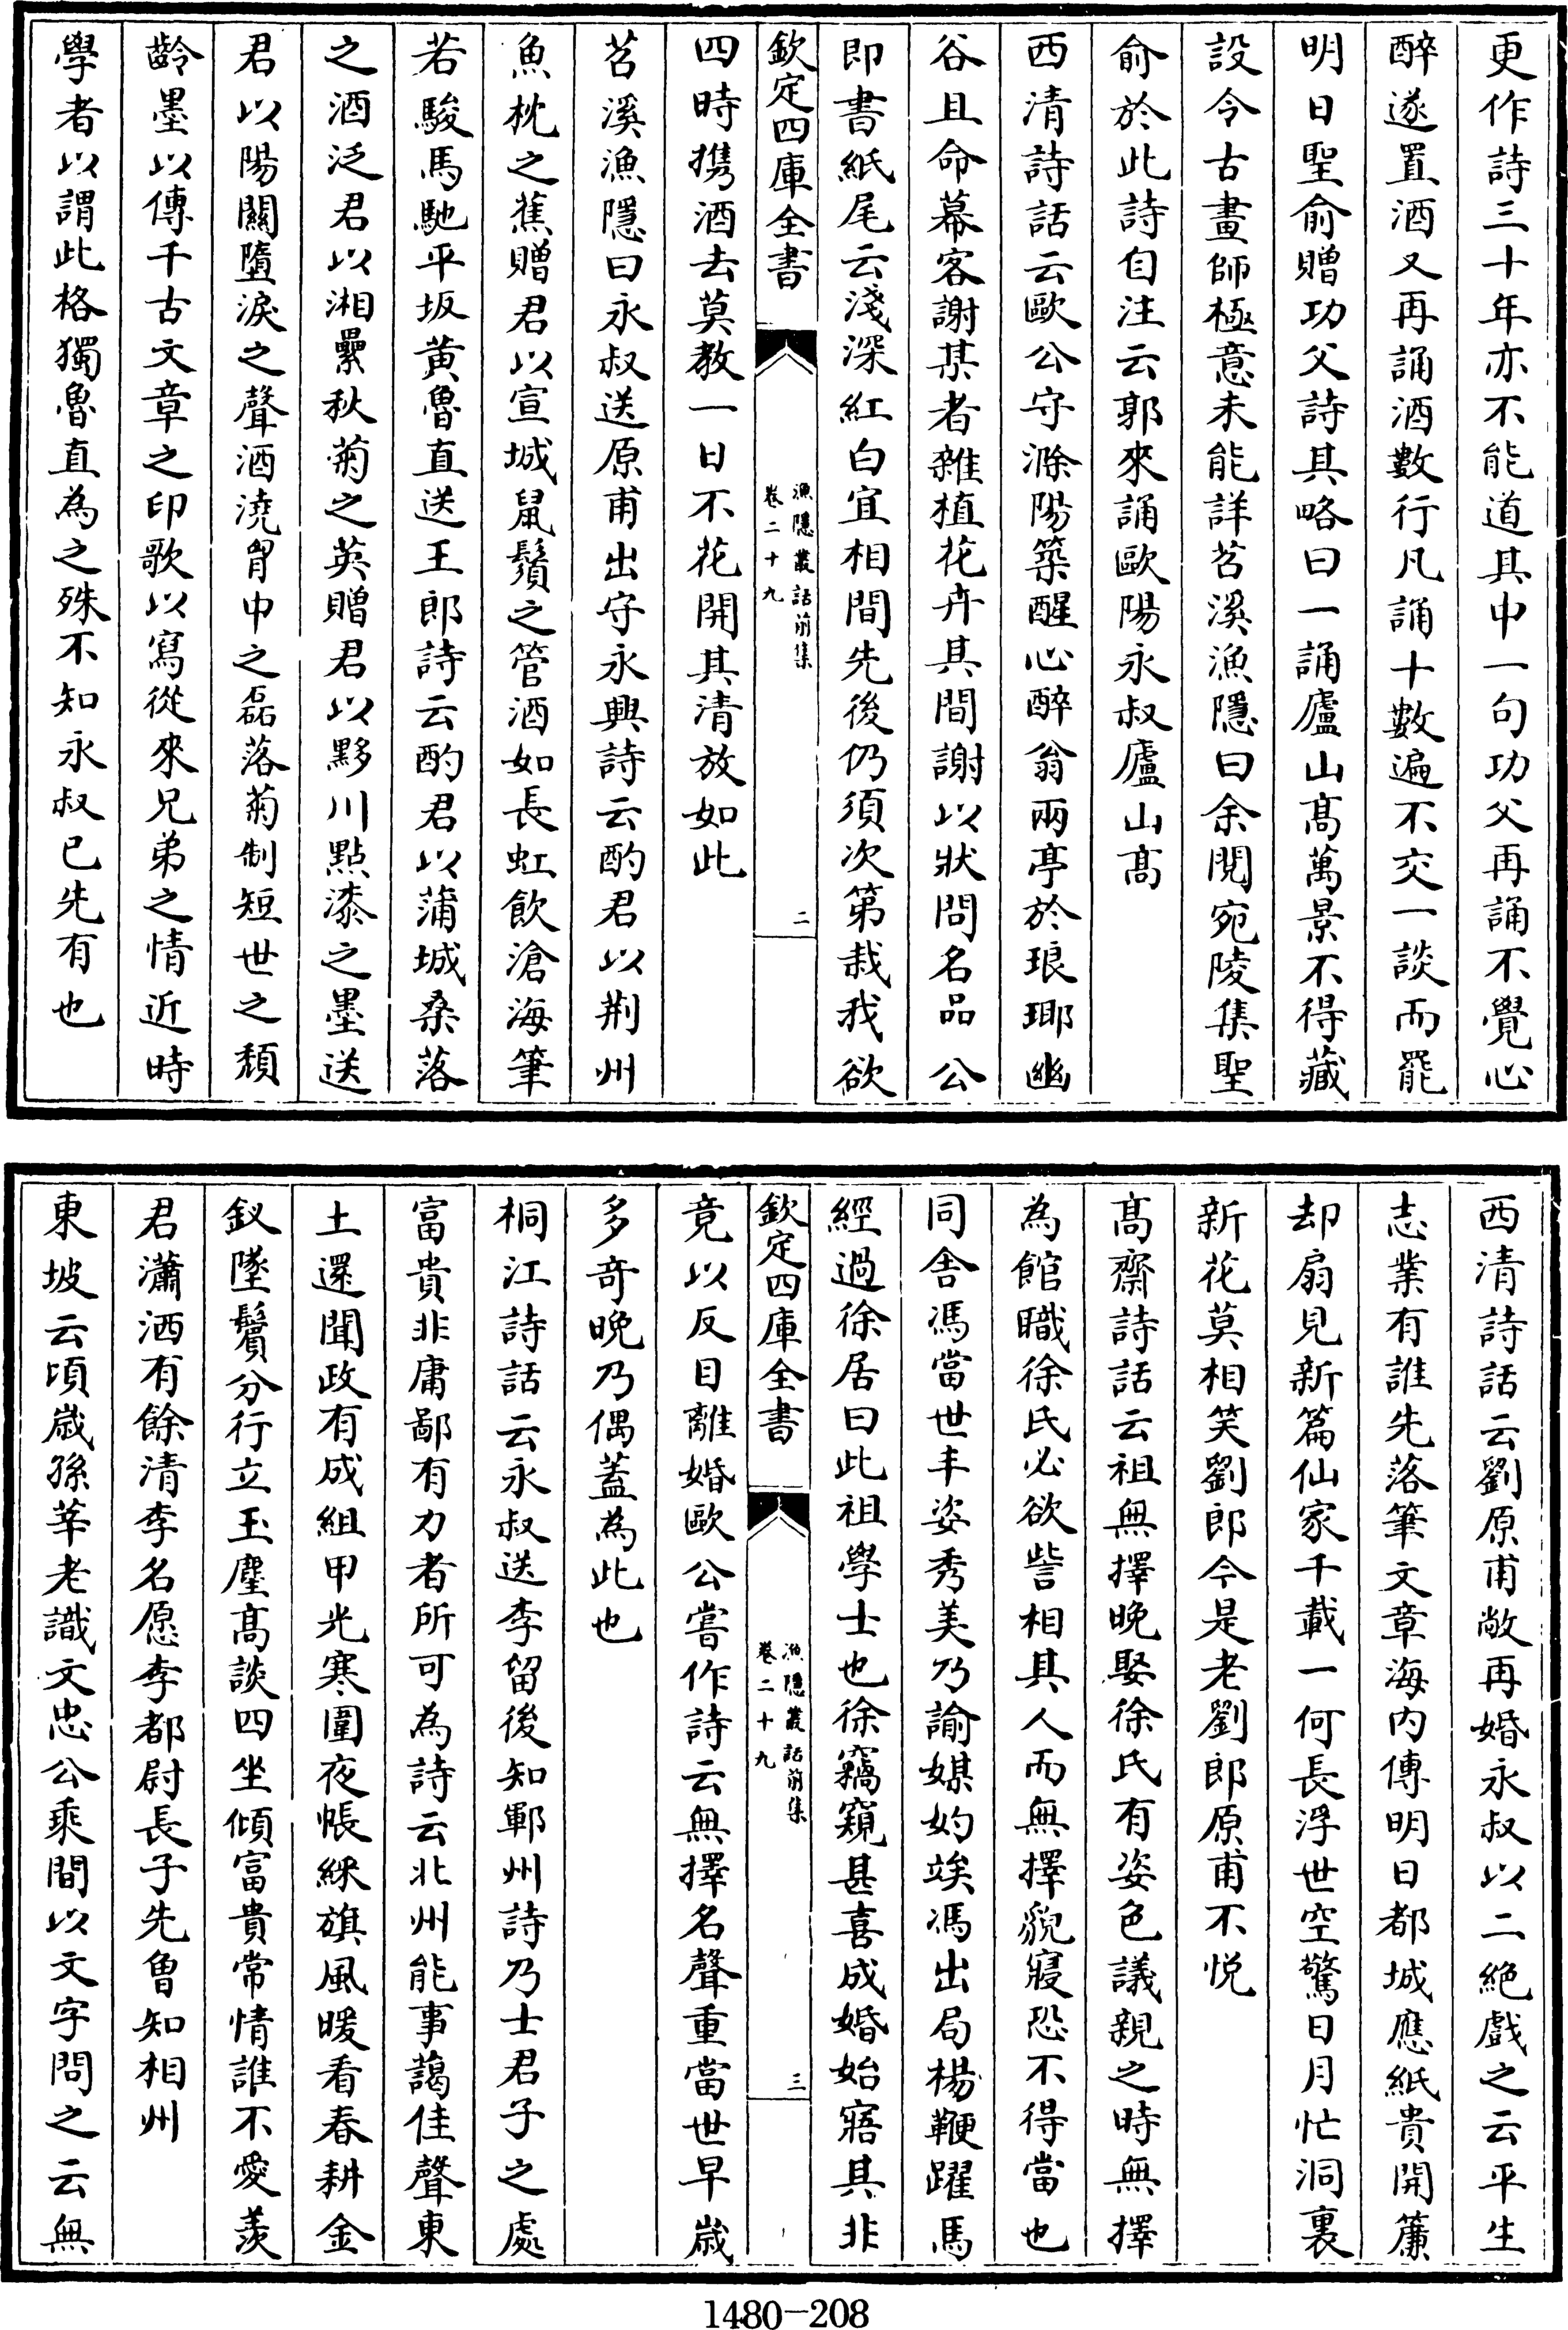 更作詩三十年亦不能道其中一句功父再誦不覺心
醉遂置酒又再誦酒數行凡誦十數遍不交一談而罷
明日聖俞贈功父詩其略曰一誦廬山髙萬景不得藏
設令古畫師極意未能詳苕溪漁隱曰余閱宛陵集聖
俞於此詩自注云郭來誦歐陽永叔廬山髙
西清詩話云歐公守滁陽築醒心醉翁兩亭於琅瑘幽
谷且命幕客謝某者雜植花卉其間謝以狀問名品公
即書紙尾云淺深紅白宜相間先後仍須次第栽我欲
欽定四庫全書
漁隱叢話前集
卷二十九
二
四時携酒去莫教一日不花開其清放如此
苕溪漁隱曰永叔送原甫出守永興詩云酌君以荆州
魚枕之蕉贈君以宣城鼠鬚之管酒如長虹飲滄海筆
若駿馬馳平坂黄魯直送王郎詩云酌君以蒲城桑落
之酒泛君以湘纍秋菊之英贈君以黟川點漆之墨送
君以陽關墮淚之聲酒澆胷中之磊落菊制短世之頽
齡墨以傳千古文章之印歌以寫從來兄弟之情近時
學者以謂此格獨魯直為之殊不知永叔已先有也
西清詩話云劉原甫敞再婚永叔以二絶戲之云平生
志業有誰先落筆文章海内傳明日都城應紙貴開簾
却扇見新篇仙家千載一何長浮世空驚日月忙洞裏
新花莫相笑劉郎今是老劉郎原甫不悦
髙齋詩話云祖無擇晚娶徐氏有姿色議親之時無擇
為館職徐氏必欲訾相其人而無擇貌寢恐不得當也
同舍馮當世丰姿秀美乃諭媒妁竢馮出局楊鞭躍馬
經過徐居曰此祖學士也徐竊窺甚喜成婚始寤其非
欽定四庫全書
漁隱叢話前集
卷二十九
三
竟以反目離婚歐公嘗作詩云無擇名聲重當世早歳
多奇晚乃偶蓋為此也
桐江詩話云永叔送李留後知鄆州詩乃士君子之處
富貴非庸鄙有力者所可為詩云北州能事藹佳聲東
土還聞政有成組甲光寒圍夜帳綵旗風暖看春耕金
釵墜鬢分行立玉麈髙談四坐傾富貴常情誰不愛羡
君瀟洒有餘清李名愿李都尉長子先曾知相州
東坡云頃歳孫莘老識文忠公乘間以文字問之云無
1480-208